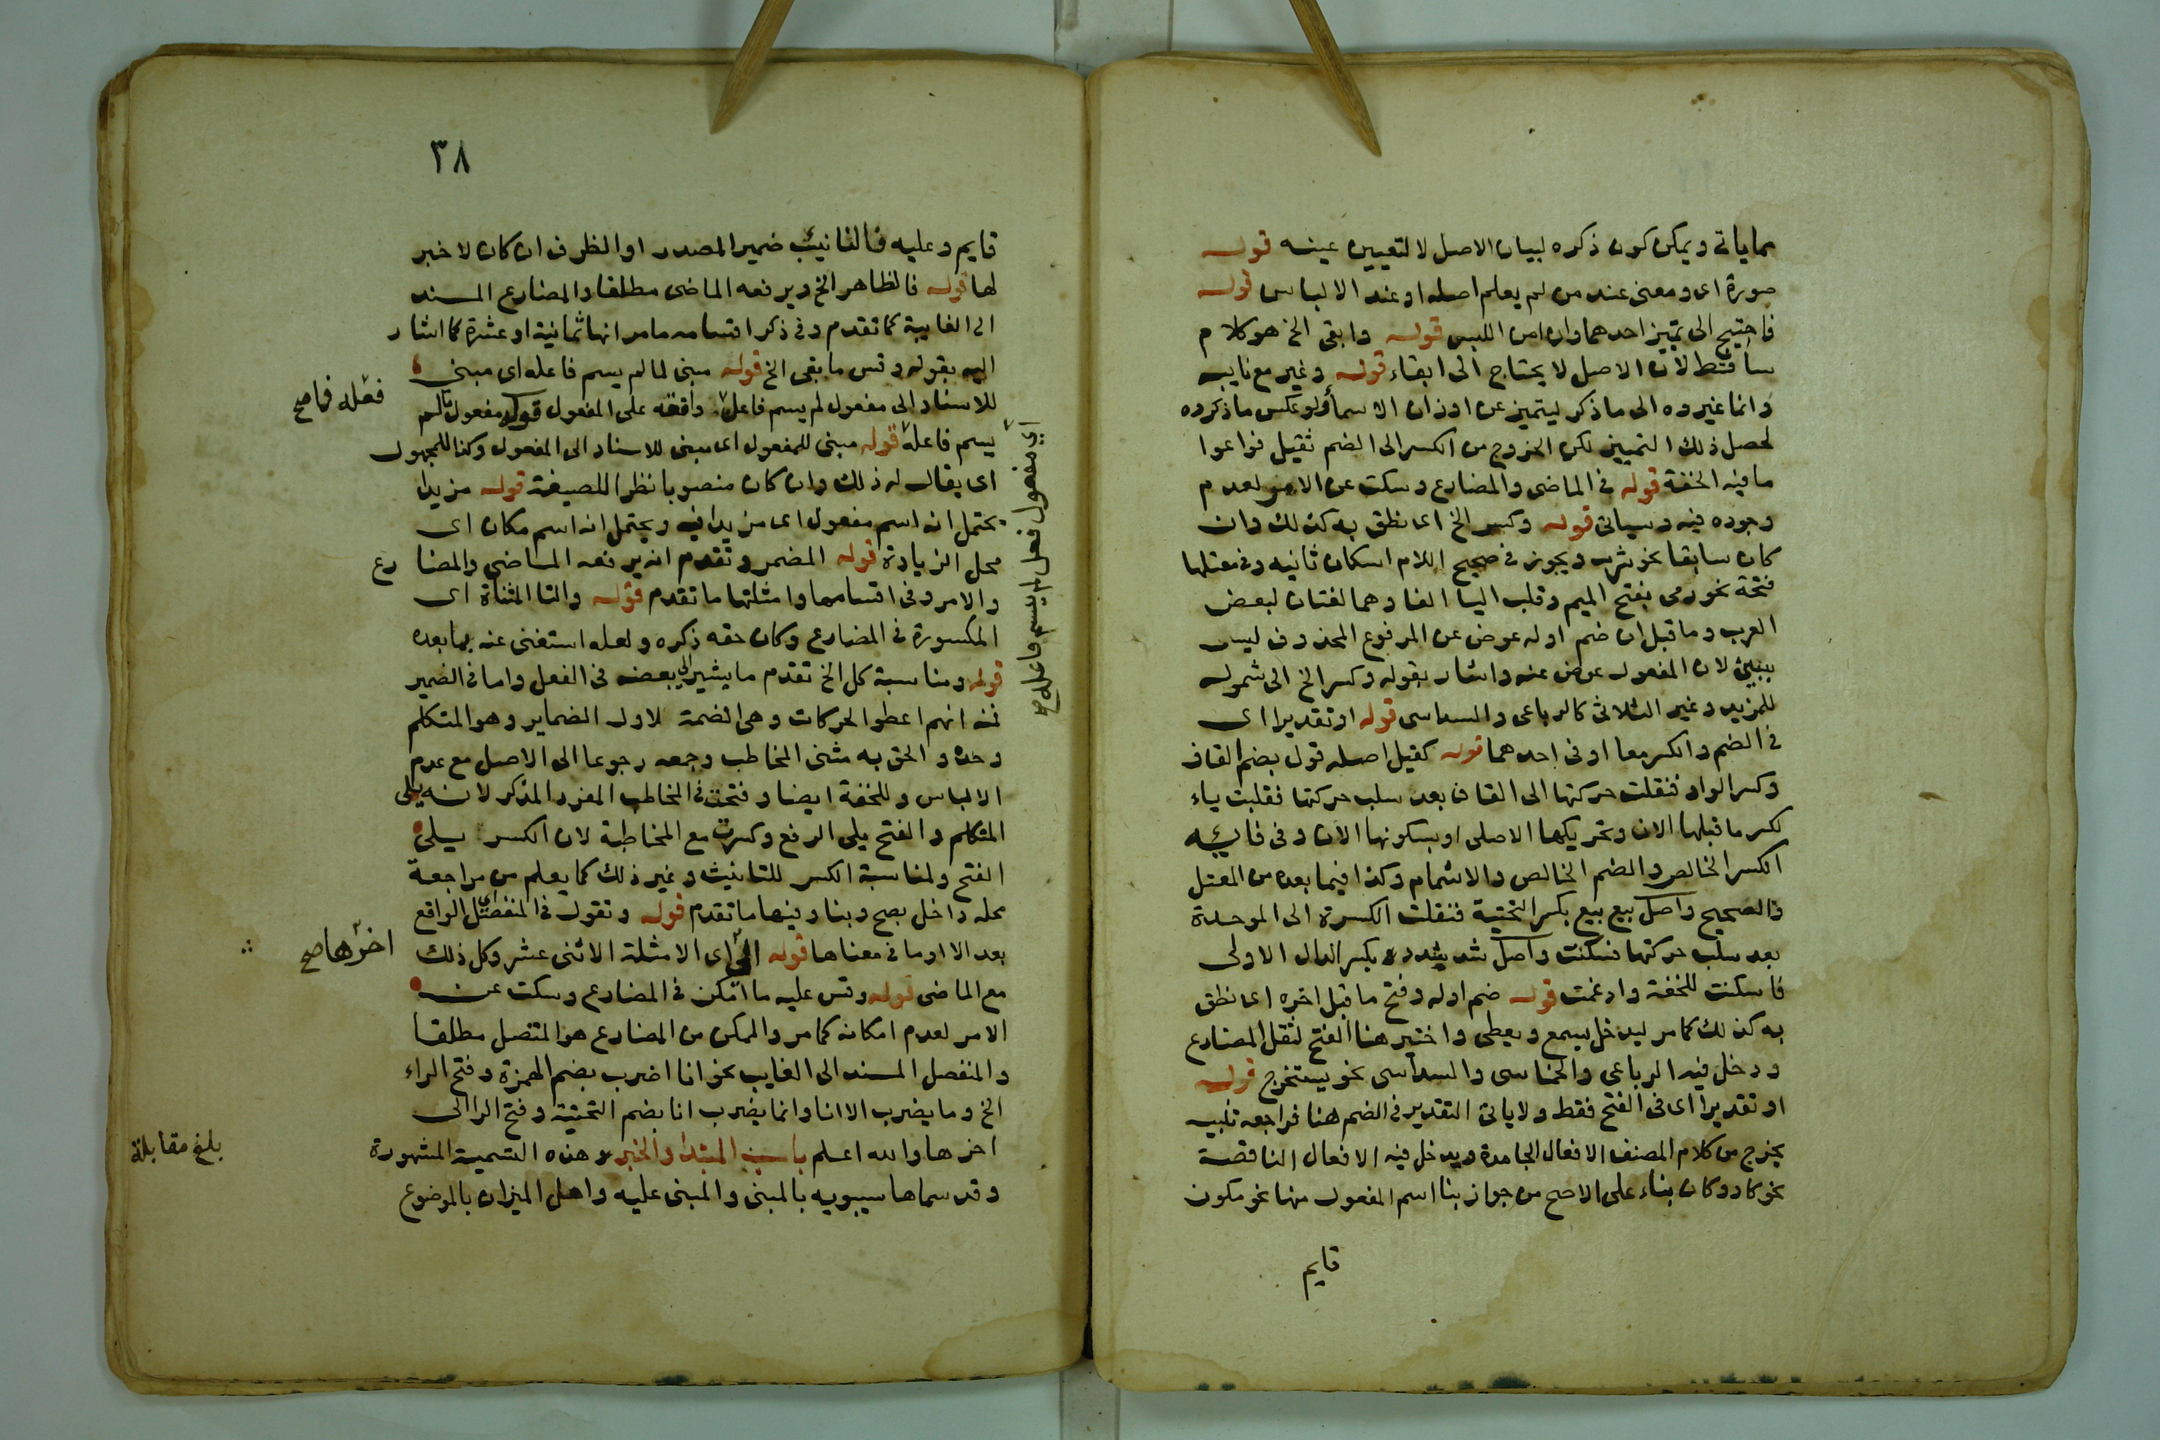 مما ياتى ويمكن كون ذكره لبيان الاصل لا لتعيين عينه قوله
صورة اى ومعنى عند من لم يعلم اصله او عند الالباس قوله
فاحتيج الى تمييز احدهما وان امن اللبس قوله وابقى الخ هو كلام
ساقط لان الاصل لا يحتاج الى ابقاء قوله وغير مع نايبه
وانما غيروه الى ما ذكر ليتميز عن اوزان الاسما ولو عكس ما ذكروه
لحصل ذلك التمييز لكن الخروج من الكسر الى الضم ثقيل فراعوا
ما فيه الخفة قوله فى الماضى والمضارع وسكت عن الامر لعدم
وجوده فيه وسياتى قوله وكسر الخ اى نطق به كذلك وان
كان سابقا نحو شرب ويجوز فى صحيح اللام اسكان ثانيه وفى معتلها
فتحة نحو رمى بفتح الميم وقلب اليا الفا وهما لغتان لبعض
العرب وما قيل ان ضم اوله عوض عن المرفوع المحذوف ليس
ببين لان المفعول عوض عنه واشار بقوله وكسر الخ الى شموله
للمزيد وغير الثلاثى كالرباعى والسداسى قوله او تقديرا اى
فى الضم والكسر معا او فى احدهما قوله كقيل اصله قول بضم القاف
وكسر الواو فنقلت حركتها الى القاف بعد سلب حركتها فقلبت ياء
لكسر ما قبلها الان وتحريكها الاصلى او بسكونها الان وفى فائه
الكسر الخالص والضم الخالص والاشمام وكذا فيما بعده من المعتل
والصحيح واصل بيع بيع بكسر التحتية فنقلت الكسرة الى الموحدة
بعد سلب حركتها فسكنت واصل شد شدد بكسر الدال الاولى
فاسكنت للخفة وادغمت قوله ضم اوله وفتح ما قبل اخره اى نطق
به كذلك كما مر ليدخل يسمع ويعطى واختير هنا الفتح لثقل المضارع
ودخل فيه الرباعى والخماسى والسداسى نحو يستخرج قوله
او تقديرا اى فى الفتح فقط ولا ياتى التقدير فى الضم هنا فراجعه تنبيه
يخرج من كلام المصنف الافعال الجامدة ويدخل فيه الافعال الناقصة
نحو كاد وكان بناء على الاصح من جواز بنا اسم المفعول منها نحو مكون
قايم
٣٨
قايم وعليه فالنائب ضمير المصدر او الظرف ان كان لا خبر
لها قوله فالظاهر الخ ويرفعه الماضى مطلقا والمضارع المسند
الى الغايبة كما تقدم وفى ذكر اقسامه ما مر انها ثمانية او عشرة كما اشار
اليه بقوله وقس ما بقى الخ قوله مبنى لما لم يسم فاعله اى مبنى
للاسناد الى مفعول لم يسم فاعل واقفه على المفعول قوله مفعول مالم
فعله فما صح
يسم فاعله قوله مبنى للمفعول اى مبنى للاسناد الى المفعول وكذا للمجهول
اى مفعول فعل لم يسم فاعله صح
اى يقال له ذلك وان كان منصوبا نظرا للصيغة قوله مزيدا
يحتمل انه اسم مفعول اى مزيدا فيه ويحتمل انه اسم مكان اى
محل الزيادة قوله المضمر وتقدم انه يرفعه الماضى والمضارع
والامر وفى اقسامها وامثلتها ما تقدم قوله والتا المثناة اى
المكسورة فى المضارع وكان حقه ذكره ولعله استغنى عنه بما بعده
قوله ومناسبة كل الخ تقدم ما يشير الى بعضه فى الفعل واما فى الضمير
فنه انهم اعطوا الحركات وهى الضمة للاول الضماير وهو المتكلم
وحده والحق به مثنى المخاطب وجمعه رجوعا الى الاصل مع عدم
الالباس وللخفة ايضا وفتحت فى المخاطب المفرد المذكر لانه يلى
المتكلم والفتح يلى الرفع وكسرت مع المخاطبة لان الكسر يلى
الفتح ولمناسبة الكسر للتانيث وغير ذلك كما يعلم من مراجعة
محله داخل بصح وبنا وينها ما تقدم قوله وتقول فى المنفصل اى الواقع
بعد الا او ما فى معناها قوله الى اى الامثلة الاثنى عشر وكل ذلك
اخرها صح
مع الماضى قوله وقس عليه ما امكن فى المضارع وسكت عن
الامر لعدم امكانه كما مر والممكن من المضارع هو المتصل مطلقا
والمنفصل المسند الى الغايب نحو انا اضرب بضم الهمزة وفتح الراء
الخ وما يضرب الا انا وانما يضرب انا بضم التحتية وفتح الرا الى
اخرها والله اعلم باب المبتدا والخبر وهذه التسمية المشهورة
بلغ مقابلة
وقد سماها سيبويه بالمبنى والمبنى عليه واهل الميزان بالموضوع